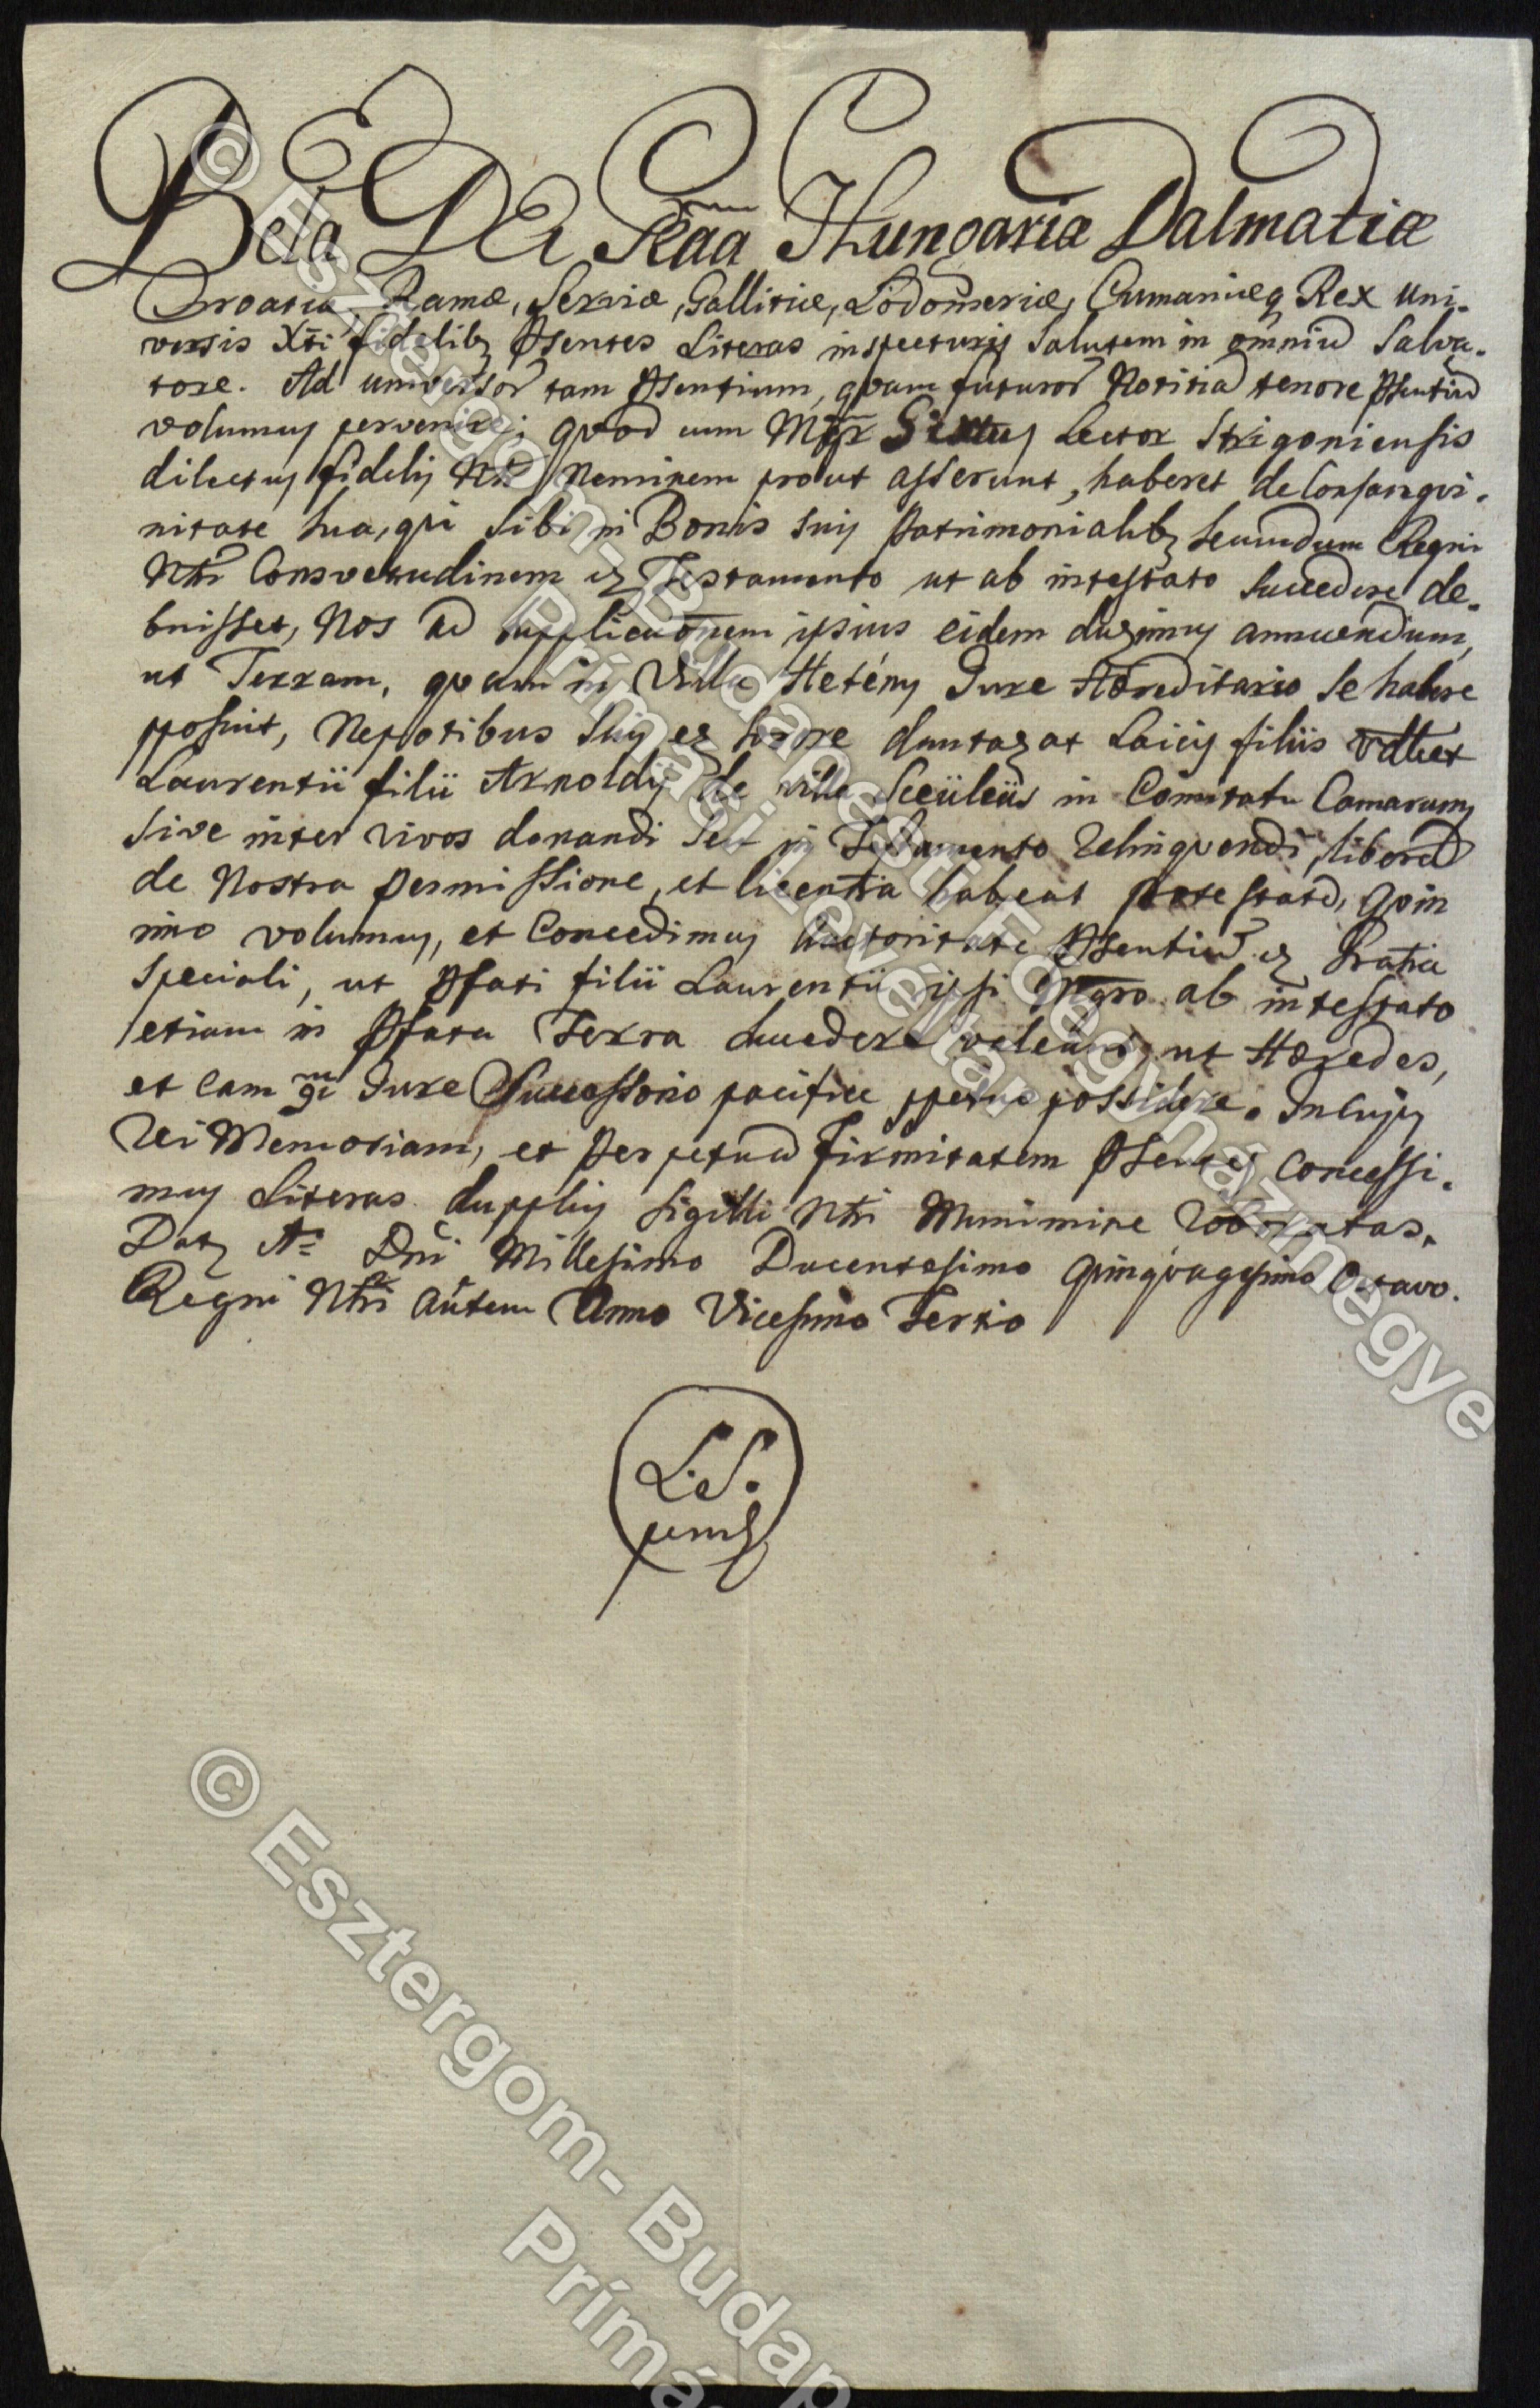 Bela Dei Graa Hungariæ Dalmatiæ
Croatiæ, Ramæ, Serviæ, Gallitiæ, Lodomeriæ, Cumaniæq Rex Uni-
versis Xti fidelibq Psentes Literas inspecturis Salutem in omniu Salva-
tore. Ad universor tam Psentium, qvam futuror Notitia tenore Psentiu
volumus pervenire; qvod cum Mgr Sixtus Lector Strigoniensis
dilectus fidelis Nr Neminem prout asserunt, haberet de Consangvi-
nitate sua, qvi sibi in Bonis suis Patrimonialibq secundum Regni
Ntri Consvetudinem ex Testamento ut ab intestato succedere de-
buisset, Nos ad supplicaonem ipsius eidem duximus annuendum,
ut Terram, qvam in Villa Hetény Jure Hæreditario se habere
pposuit, Nepotibus suis ex sorore duntaxat Laicis filiis vdlict
Laurentii filii Arnoldi, de villa in Comitatu Camarum,
sive inter vivos donandi seu in Testamento relinqvendi, libera
de Nostra Permissione, et licentia habeat potestate, qvin
imo volumus, et Concedimus Auctoritate Psentiu ex Gratia
speciali, ut Pfati filii Laurentii ipsi Mgro ab intestato
etiam in Pfata Terra succedere valeant, ut Hæredes,
et eam Jure Successorio pacifice ppetuo possidere. In cujus
rei Memoriam, et Perpetua Firmitatem Psentes Concessi-
mus Literas dupplicis sigilli Ntri Munimine roboratas.
Datq Ao Dni Millesimo Ducentesimo Qvinqvagesimo Octavo.
Regni Ntri autem Anno Vicesimo Tertio
L. S.
© Esztergom-Budapesti Főegyházmegye
Prímási Levéltár
© Esztergom-Budap
Prímá